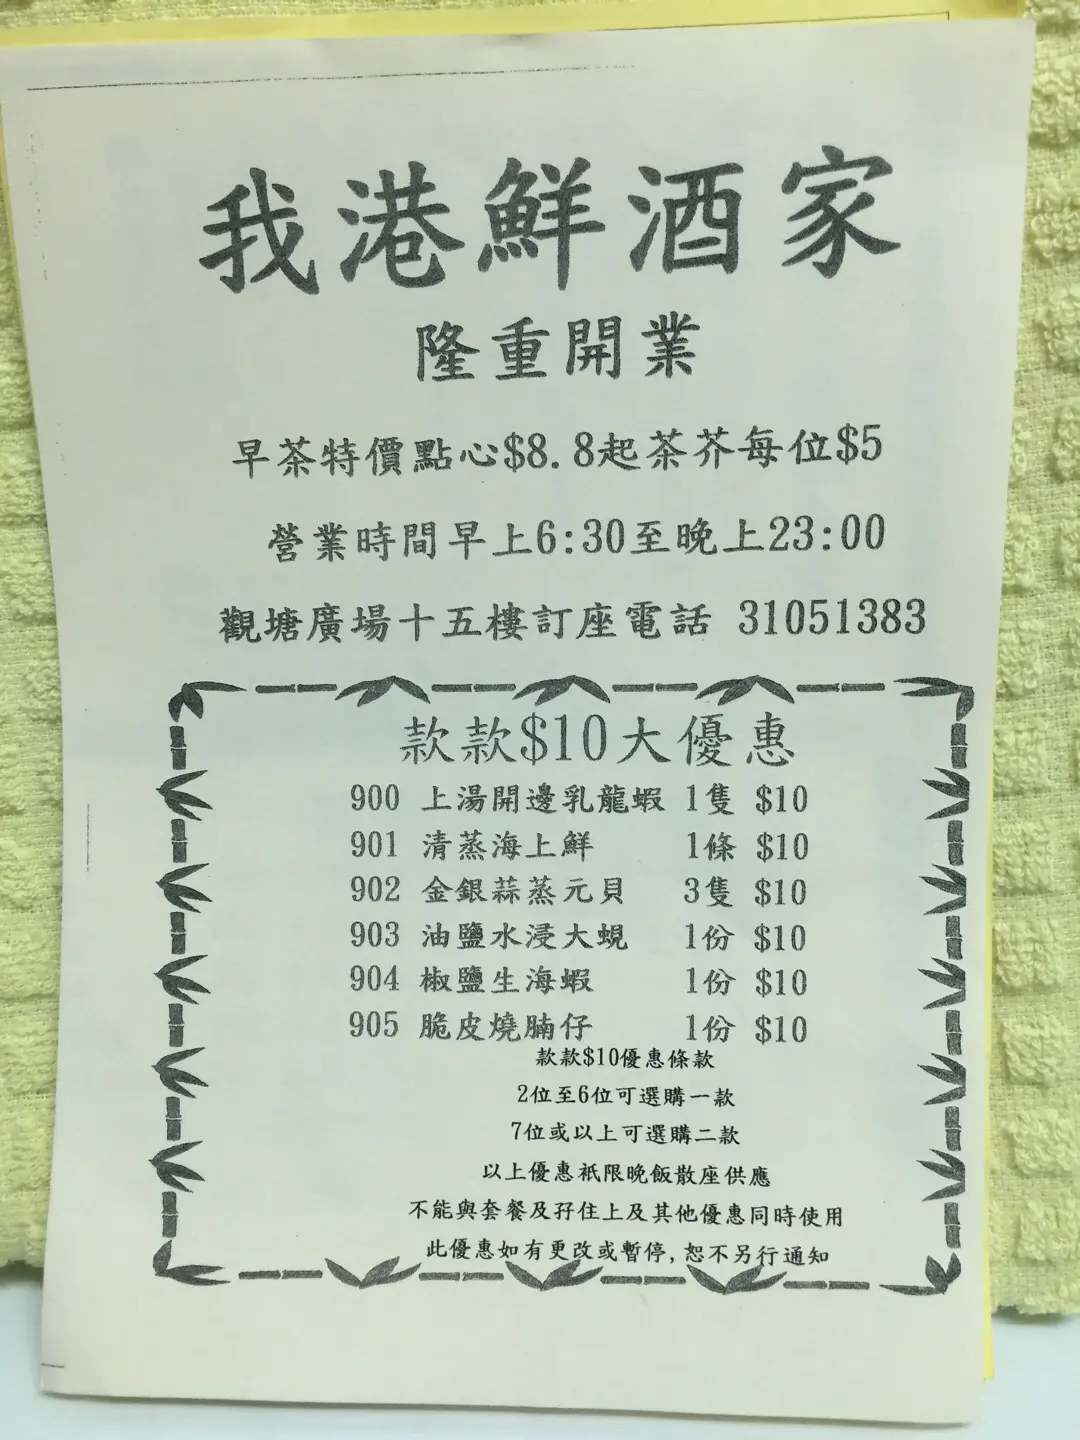 我港鮮酒家
隆重開業
早茶特價點心$8.8起茶芥每位$5
營業時間早上6:30至晚上23:00
觀塘廣場十五樓訂座電話 31051383
款款$10大優惠
900 上湯開邊乳龍蝦 1隻 $10
901 清蒸海上鮮 1條 $10
902 金銀蒜蒸元貝 3隻 $10
903 油鹽水浸大蜆 1份 $10
904 椒鹽生海蝦 1份 $10
905 脆皮燒腩仔 1份 $10
款款$10優惠條款
2位至6位可選購一款
7位或以上可選購二款
以上優惠衹限晚飯散座供應
不能與套餐及孖住上及其他優惠同時使用
此優惠如有更改或暫停,恕不另行通知